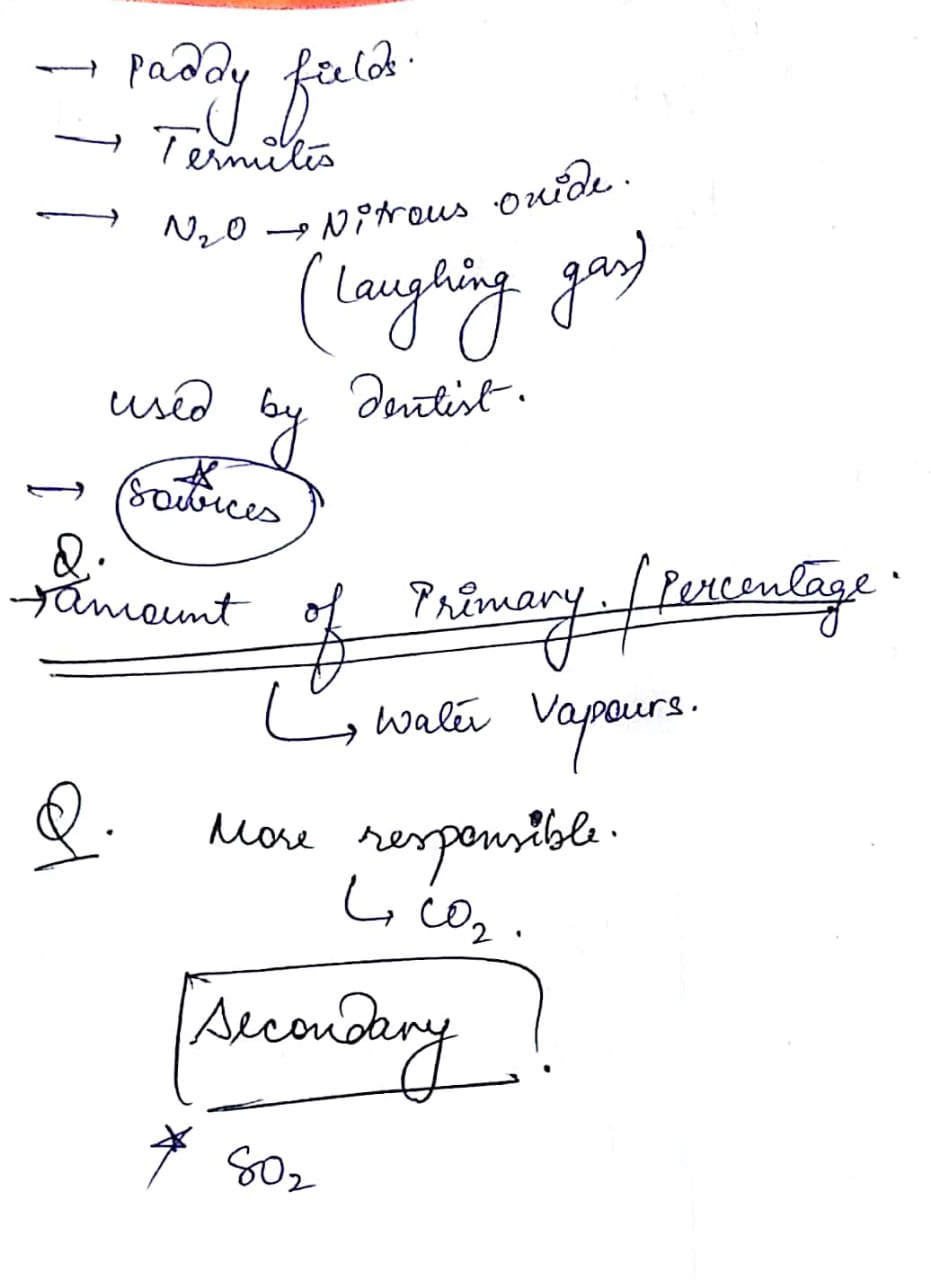 → Paddy fields.
→ Termites
→ N₂O → Nitrous oxide.
(Laughing gas)
used by dentist.
→ Sources
Q.
→ amount of Primary. / Percentage.
↳ Water Vapours.
Q. More responsible.
↳ CO₂.
Secondary
* SO₂